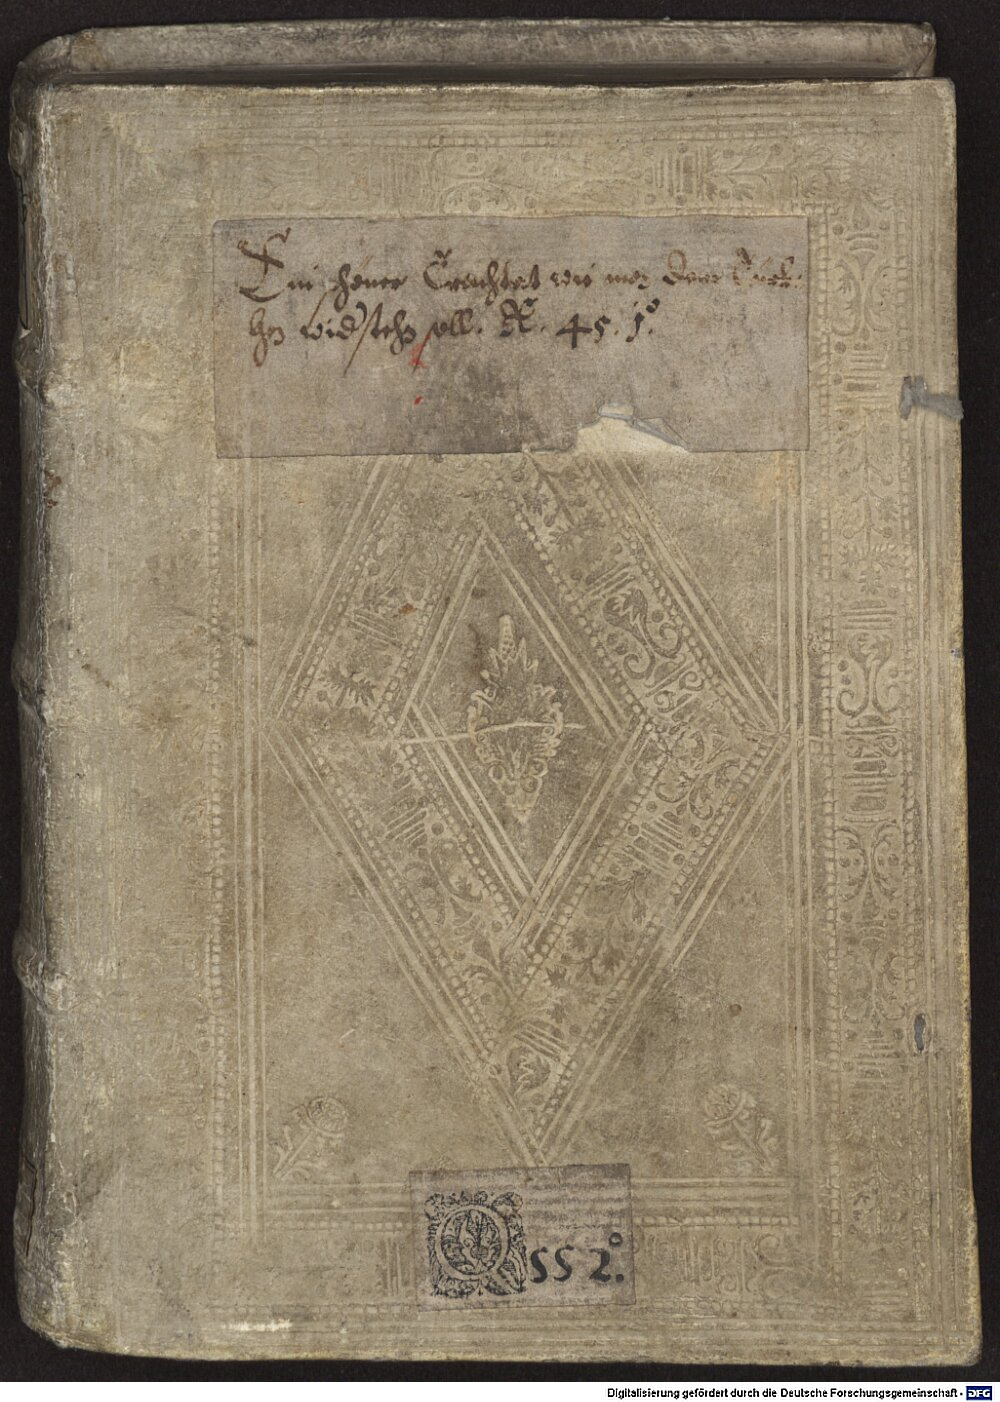 Ein schöner Trachtat wie mez dem Türk:
hen wid'stehn soll. R. 45. 1°.
Q 55 2°.
Digitalisierung gefördert durch die Deutsche Forschungsgemeinschaft - DFG